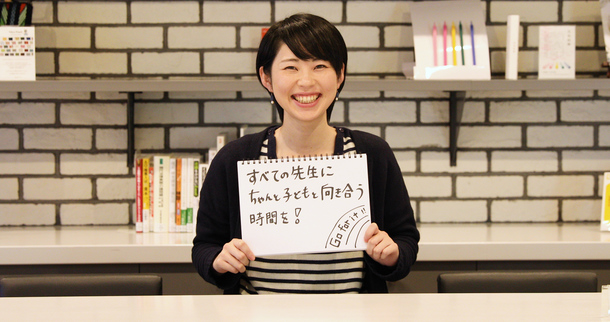 すべての先生に
ちゃんと子どもと向き合う
時間を!
Go for it!!